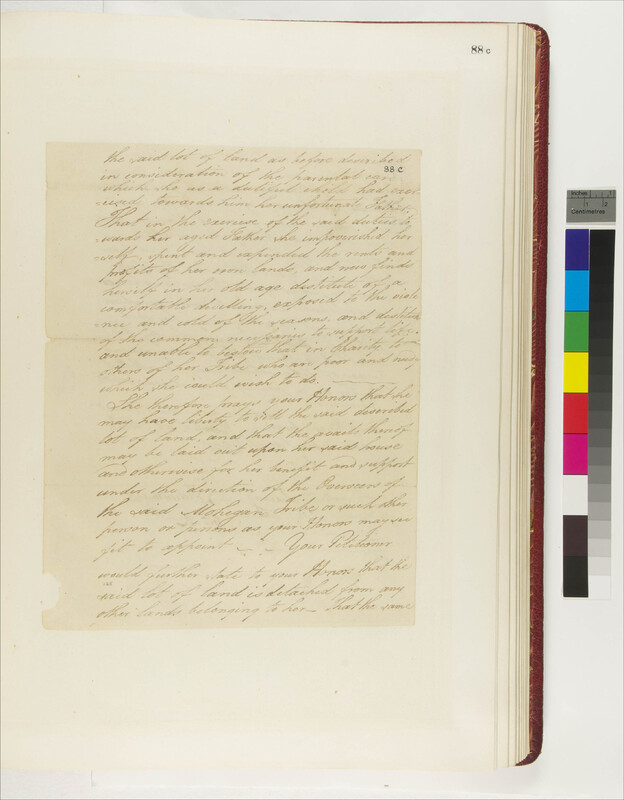 88c
the said lot of land as before described
88 C
in consideration of the parental care
which she as a dutiful child had exer
cised towards him her unfortunate Father.
That in the exercise of the said duties to
wards her aged Father she impoverished her
self, spent and expended the rents and
profits of her own lands, and now finds
herself in her old age destitute of a
comfortable dwelling, exposed to the viole
nce and cold of the seasons, and destitute
of the common necessaries to support life,
and unable to bestow that in Charity to
others of her Tribe who are poor and needy
which she could wish to do.
She therefore prays your Honors that she
may have liberty to sell the said described
lot of land, and that the avails thereof
may be laid out upon her said house
and otherwise for her benefit and support
under the direction of the Overseers of
the said Mohegan Tribe or such other
person or persons as your Honors may see
fit to appoint Your Petitioner
would further state to your Honors that the
said lot of land is detached from any
other lands belonging to her That the same
inches 1 2
Centimetres